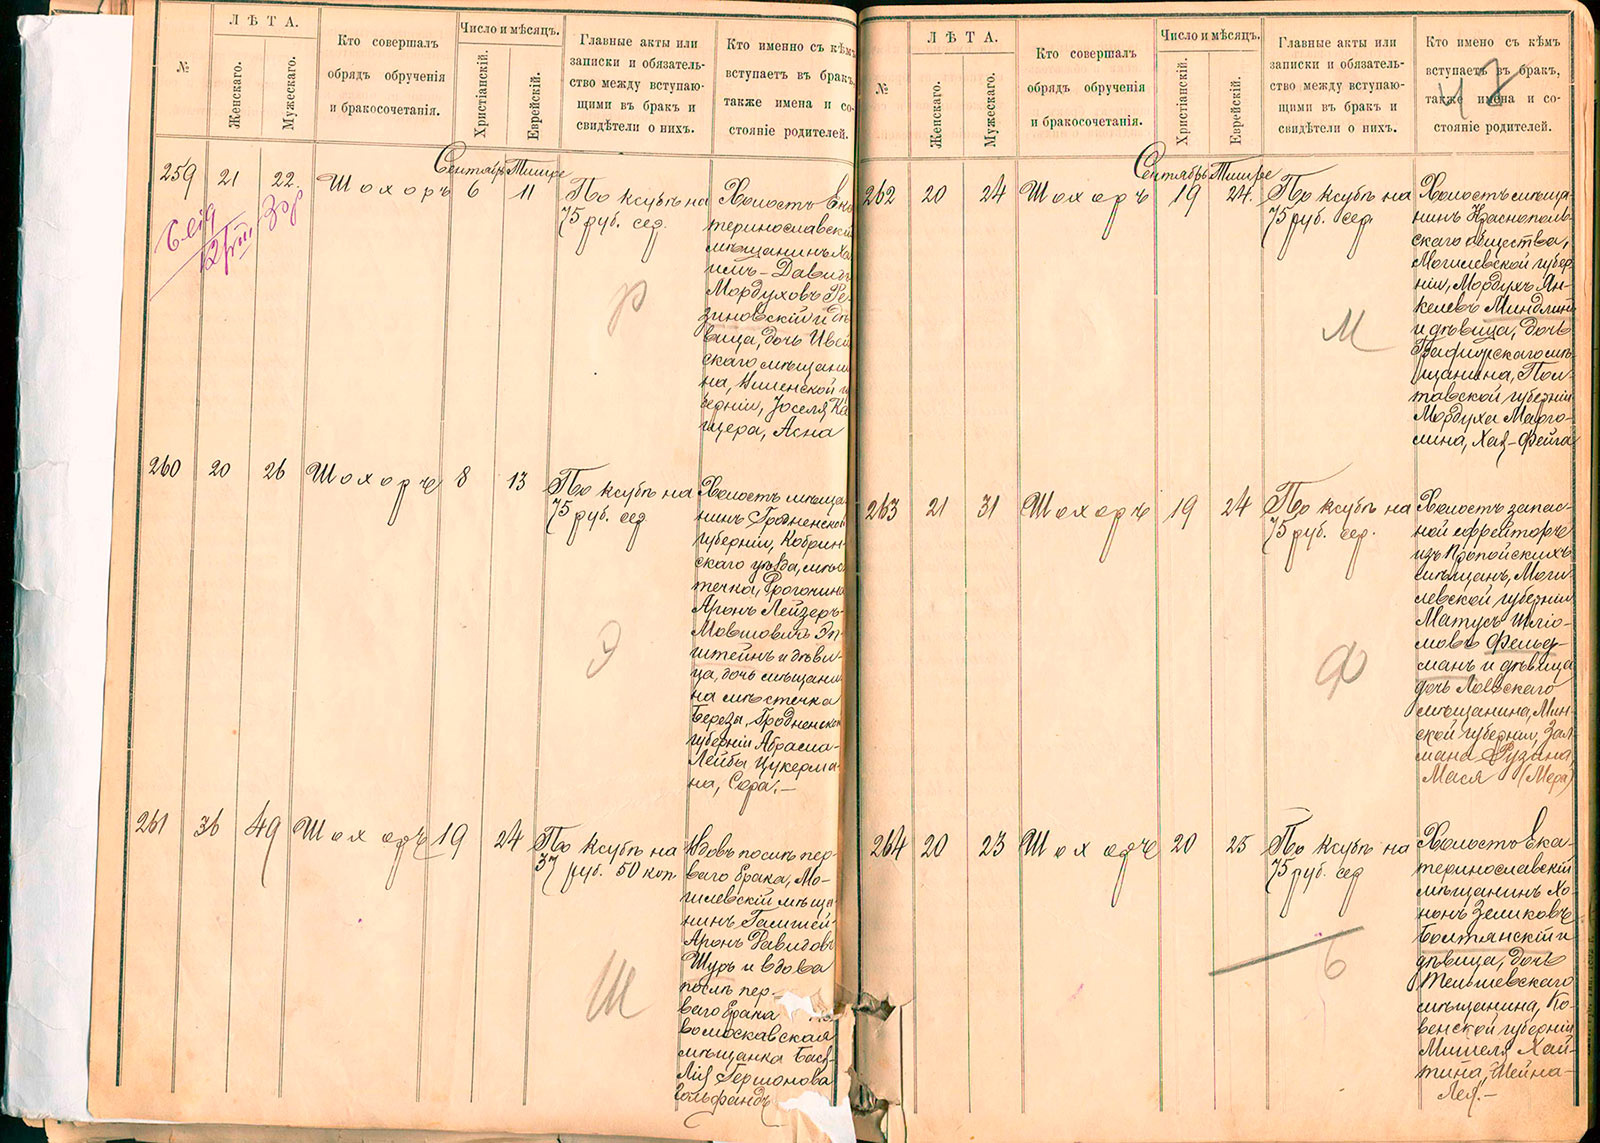 №
ЛѢТА.
Женскаго.
Мужескаго.
Кто совершалъ
обрядъ обрученія
и бракосочетанія.
Число и мѣсяцъ.
Христіанскій.
Еврейскій.
Главные акты или
записки и обязатель-
ство между вступаю-
щими въ бракъ и
свидѣтели о нихъ.
Кто именно съ кѣмъ
вступаетъ въ бракъ,
также имена и со-
стояніе родителей.
Сентябрь Тишре
259
21
22.
Шохоръ
6
11
По ксубѣ на
75 руб. сер.
Холостъ Ека
теринославскій
мѣщанинъ Ха
имъ-Давидъ
Мордуховъ Ре
зиновскій и дѣ
вица, дочь
скаго мѣщани
на, Виленской гу
берніи, Іоселя Ка
щера, Асна
Р
260
20
26
Шохоръ
8
13
По ксубѣ на
75 руб. сер.
Холостъ мѣща
нинъ Гродненской
губерніи, Кобрин-
скаго уѣзда, мѣс
течка,
Аронъ Лейзеръ-
Мовшовичъ Эп
штейнъ и дѣви
ца, дочь мѣщани
на мѣстечка
Береза, Гродненской
губерніи Абрама-
Лейбы Цукерма
на, Сора.-
Э
261
36
49
Шохоръ
19
24
По ксубѣ на
37 руб. 50 коп
Вдовъ послѣ пер
ваго брака, Мо-
гилевскій мѣща
нинъ
Аронъ Давидовъ
Шуръ и вдова
послѣ пер-
ваго брака
вомосковская
мѣщанка Бася
Лія Гершонова
Гольфандъ
Ш
№
ЛѢТА.
Женскаго.
Мужескаго.
Кто совершалъ
обрядъ обрученія
и бракосочетанія.
Число и мѣсяцъ.
Христіанскій.
Еврейскій.
Главные акты или
записки и обязатель-
ство между вступаю-
щими въ бракъ и
свидѣтели о нихъ.
Кто имено съ кѣмъ
вступаетъ въ бракъ,
также имена и со-
стояніе родителей.
Сентябрь Тишре
262
20
24
Шохоръ
19
24.
По ксубѣ на
75 руб. сер.
Холостъ мѣща
нинъ Краснополь
скаго общества,
Могилевской губер
ніи, Мордухъ Ян-
келевъ Миндлинъ
и дѣвица, дочь
скаго мѣ
щанина, Пол-
тавской губерніи
Мордуха Марго-
лина, Хая-Фейга
М
263
21
31
Шохоръ
19
24
По ксубѣ на
75 руб. сер.
Холостъ запас-
ной ефрейторъ
изъ Пропойскихъ
мѣщанъ, Моги-
левской губерніи
Матусъ Шліо-
мовъ Фельд-
манъ и дѣвица
дочь Лоевскаго
мѣщанина, Мин-
ской губерніи, Зал
мана Рузина,
Мася (Мера)
Ф
264
20
23
Шохоръ
20
25
По ксубѣ на
75 руб. сер
Холостъ Ека-
теринославскій
мѣщанинъ Хо-
нонъ Зеликовъ
Болтянскій и
дѣвица, дочь
Тельшевскаго
мѣщанина, Ко-
венской губерніи
Мишеля Хай-
тина, Шейна-
Лея.-
Б